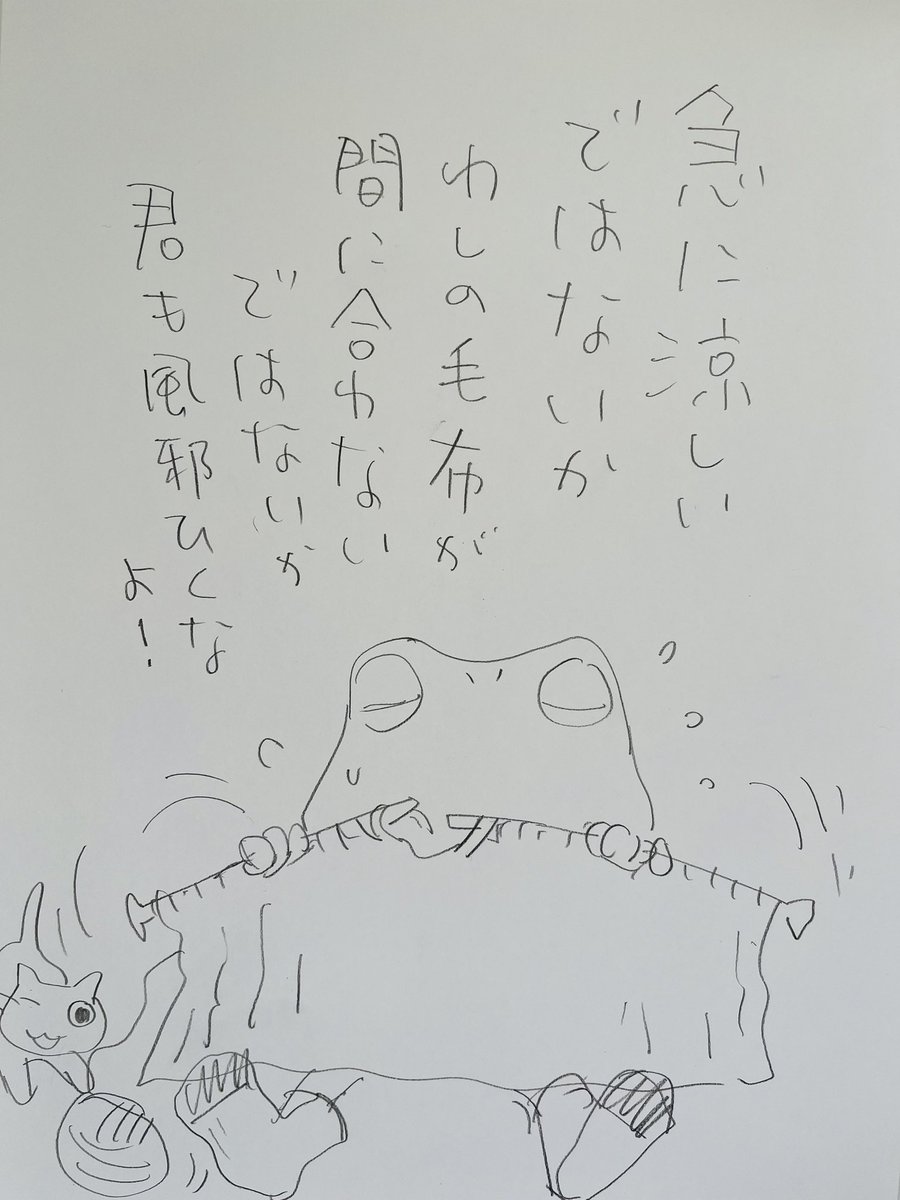 急に涼しい
ではないか
わしの毛布が
間に合わない
ではないか
君も風邪ひくな
よ！